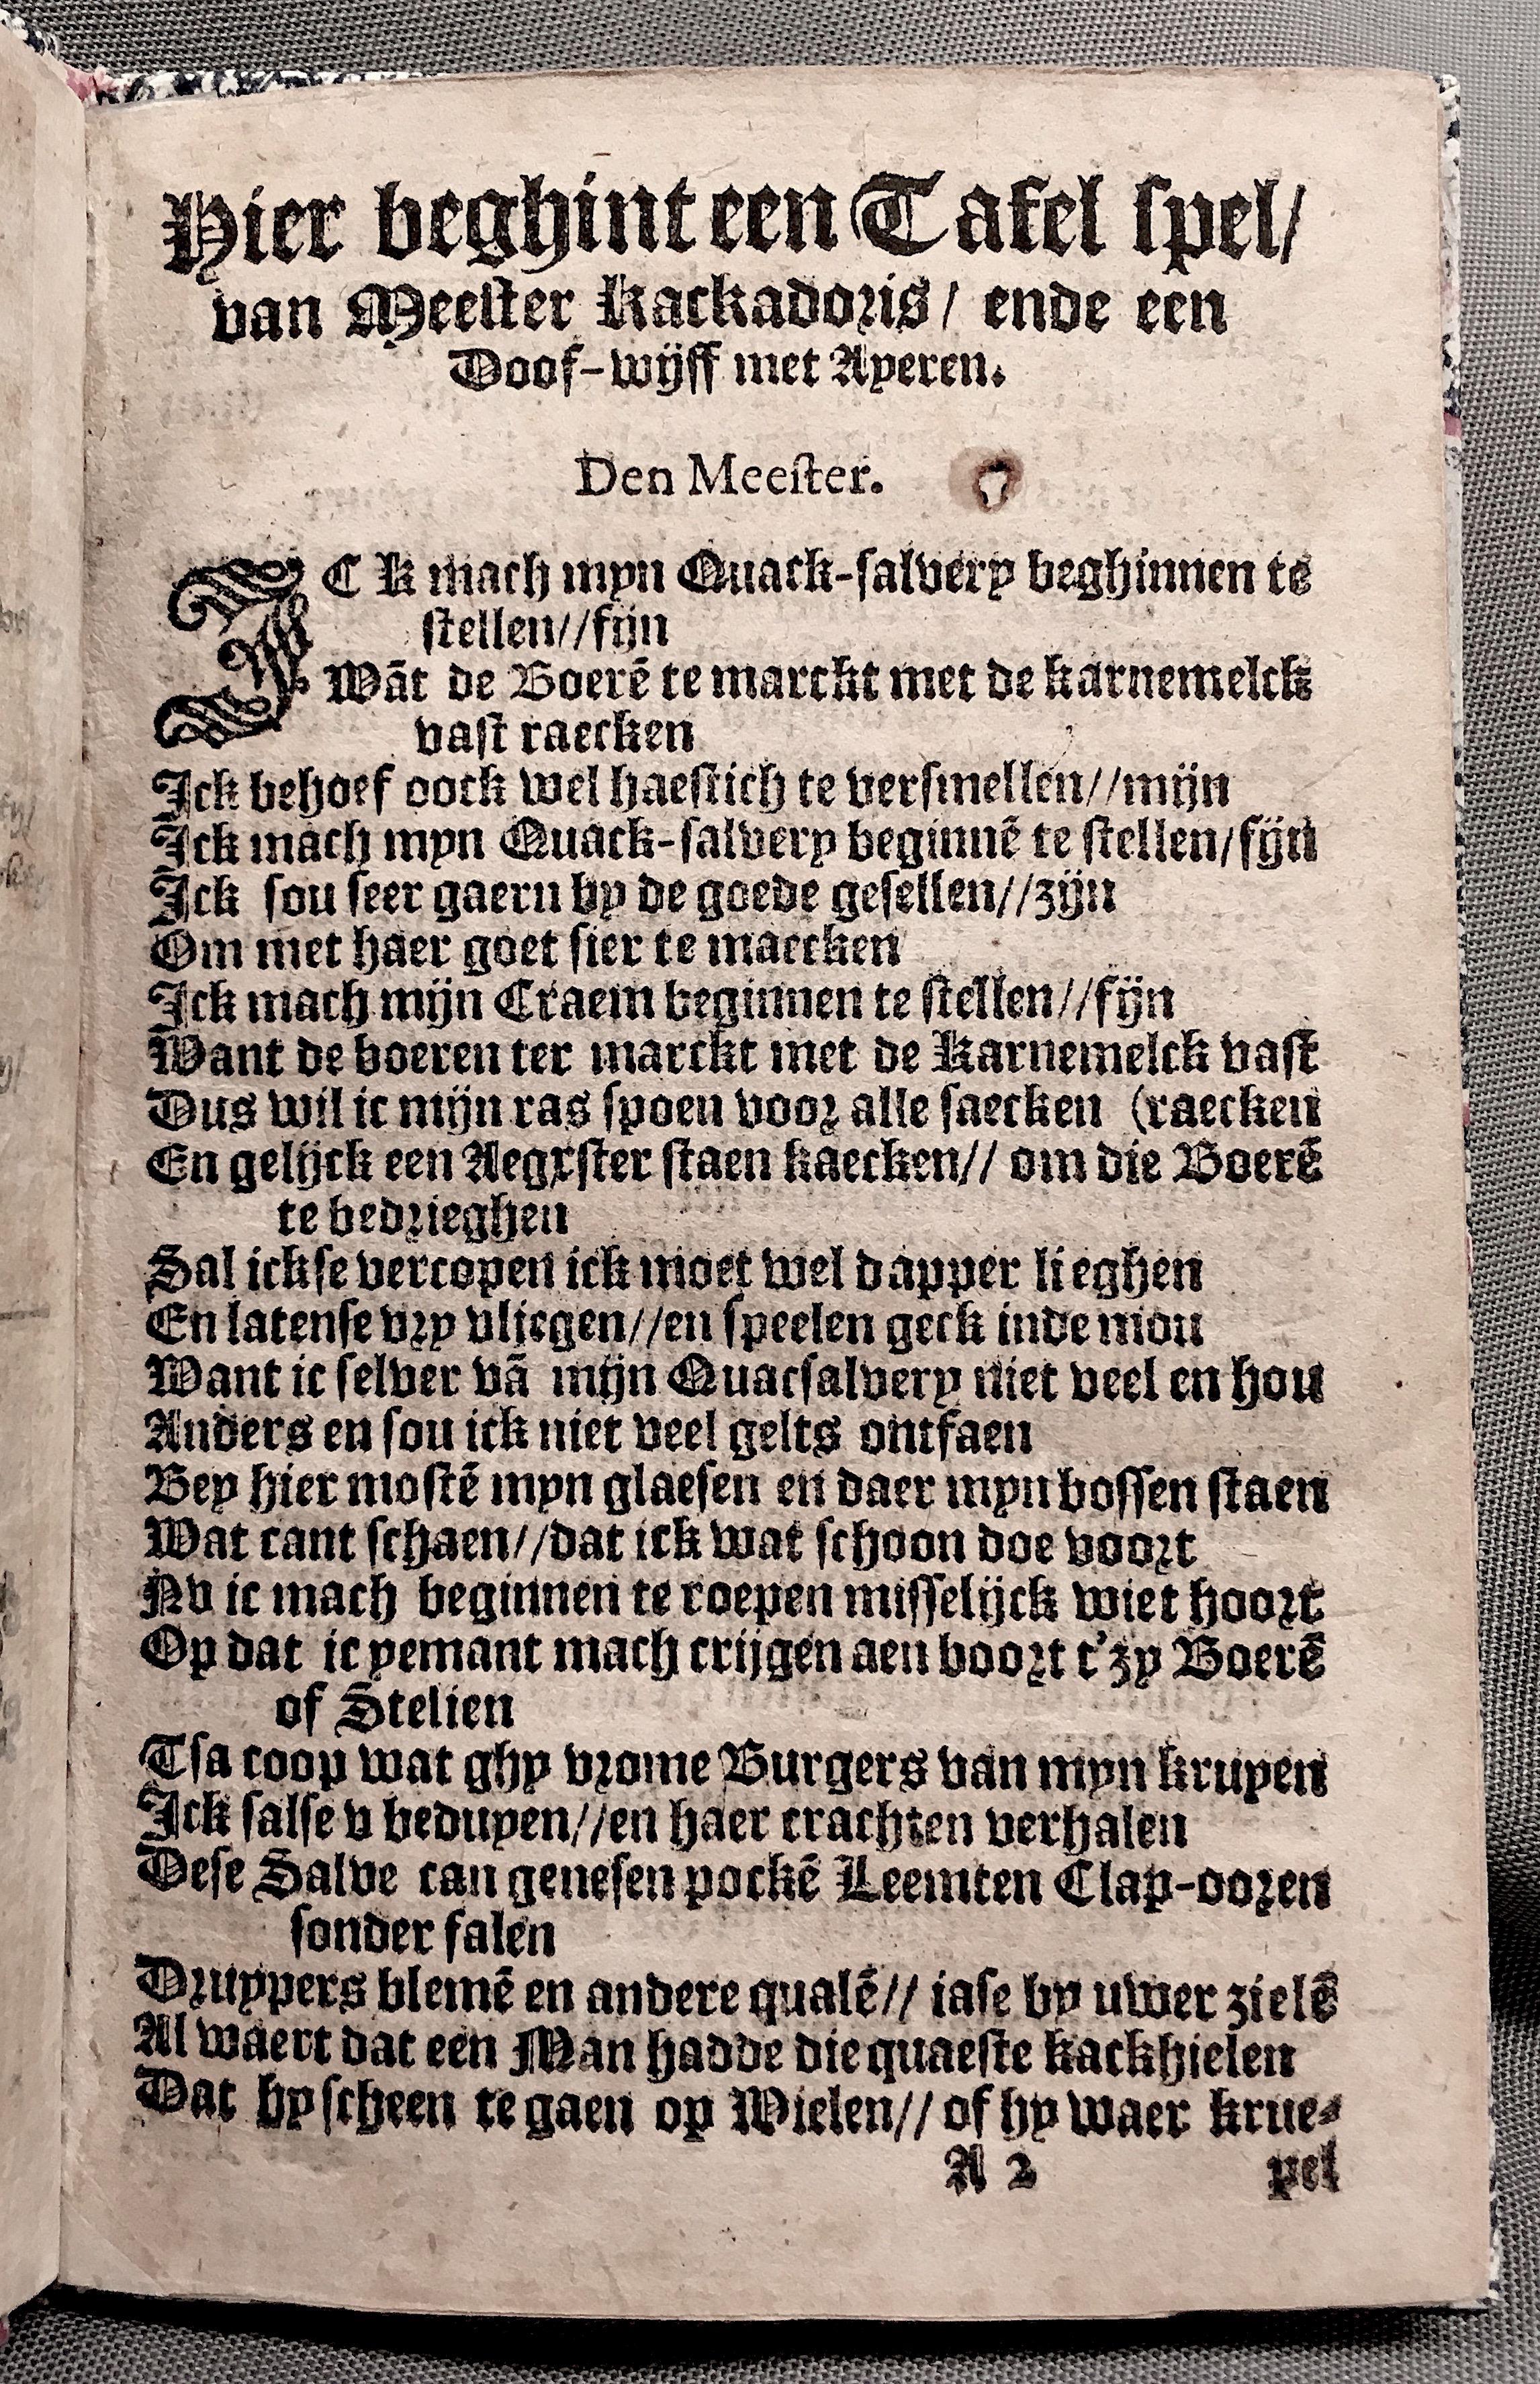 Hier beghint een Tafel spel/
van Meester Kackadoris/ ende een
Doof-wijff met Ayeren.
Den Meester.
ICK mach myn Quack-salvery beghinnen te
stellen//fijn
Wāt de Boerē te marckt met de karnemelck
vast raecken
Ick behoef oock wel haestich te versmellen//mijn
Ick mach myn Quack-salvery beginnē te stellen/fijn
Ick sou seer gaern by de goede gesellen//zijn
Om met haer goet sier te maecken
Ick mach mijn Craem beginnen te stellen//fijn
Want de boeren ter marckt met de Karnemelck vast
Dus wil ic mijn ras spoen voor alle saecken (raecken
En gelijck een Aegxster staen kaecken// om die Boerē
te bedrieghen
Sal ickse vercopen ick moet wel dapper lieghen
En latense vry vliegen//en speelen geck inde mou
Want ic selver vā mijn Quacsalvery niet veel en hou
Anders en sou ick niet veel gelts ontfaen
Bey hier mostē myn glaesen en daer myn bossen staen
Wat cant schaen//dat ick wat schoon doe voort
Nv ic mach beginnen te roepen misselijck wiet hoort
Op dat ic yemant mach crijgen aen boort t'zy Boerē
of Stelien
Tsa coop wat ghy vrome Burgers van myn kruyen
Ick salse v beduyen//en haer crachten verhalen
Dese Salve can genesen pockē Leemten Clap-ooren
sonder falen
Druypers blemē en andere qualē// iase by uwer zielē
Al waert dat een Man hadde die quaeste kackhielen
Dat hy scheen te gaen op Wielen// of hy waer krue-
A 2 pel